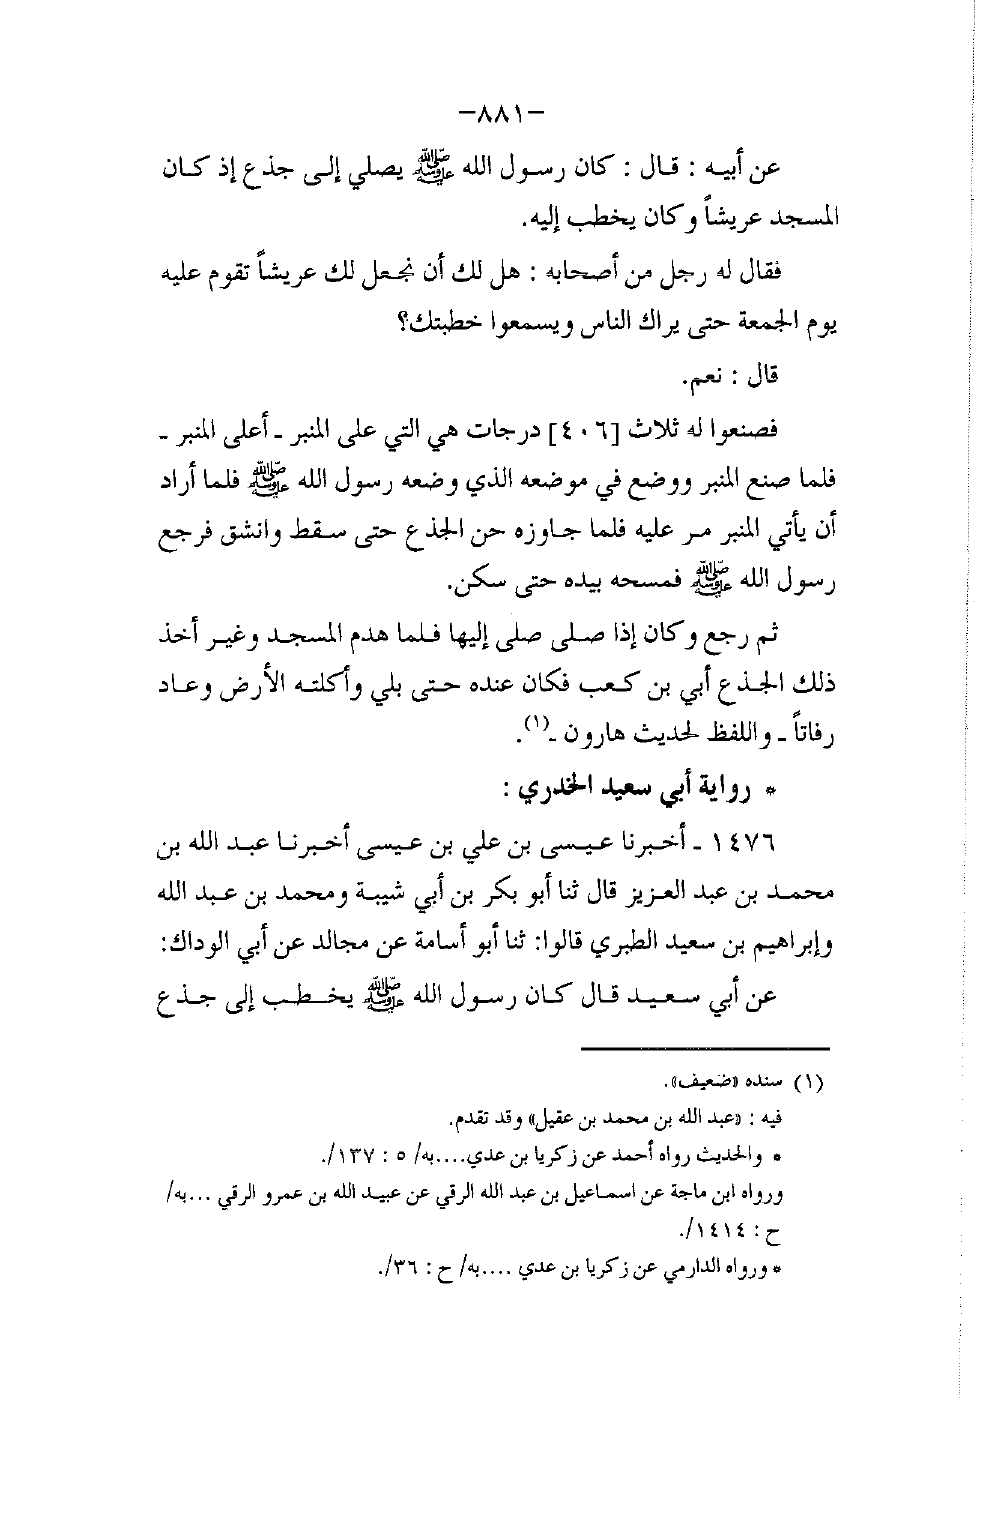 -٨٨١-
عن أبيه : قال : كان رسول الله ﷺ يصلي إلى جذع إذ كان
المسجد عريشاً وكان يخطب إليه.
فقال له رجل من أصحابه : هل لك أن نجعل لك عريشاً تقوم عليه
يوم الجمعة حتى يراك الناس ويسمعوا خطبتك؟
قال : نعم.
فصنعوا له ثلاث [٤٠٦] درجات هي التي على المنبر ـ أعلى المنبر ـ
فلما صنع المنبر ووضع في موضعه الذي وضعه رسول الله ﷺ فلما أراد
أن يأتي المنبر مر عليه فلما جاوزه حن الجذع حتى سقط وانشق فرجع
رسول الله ﷺ فمسحه بيده حتى سكن.
ثم رجع وكان إذا صلى صلى إليها فلما هدم المسجد وغير أخذ
ذلك الجذع أبي بن كعب فكان عنده حتى بلي وأكلته الأرض وعاد
رفاتاً ـ واللفظ لحديث هارون ـ(١).
* رواية أبي سعيد الخدري :
١٤٧٦ ـ أخبرنا عيسى بن علي بن عيسى أخبرنا عبد الله بن
محمد بن عبد العزيز قال ثنا أبو بكر بن أبي شيبة ومحمد بن عبد الله
وإبراهيم بن سعيد الطبري قالوا: ثنا أبو أسامة عن مجالد عن أبي الوداك:
عن أبي سعيد قال كان رسول الله ﷺ يخطب إلى جذع
(١) سنده «ضعيف».
فيه : «عبد الله بن محمد بن عقيل» وقد تقدم.
* والحديث رواه أحمد عن زكريا بن عدي....به/ ٥ : ١٣٧/.
ورواه ابن ماجة عن اسماعيل بن عبد الله الرقي عن عبيد الله بن عمرو الرقي ...به/
ح : ١٤١٤/.
* ورواه الدارمي عن زكريا بن عدي ....به/ ح : ٣٦/.